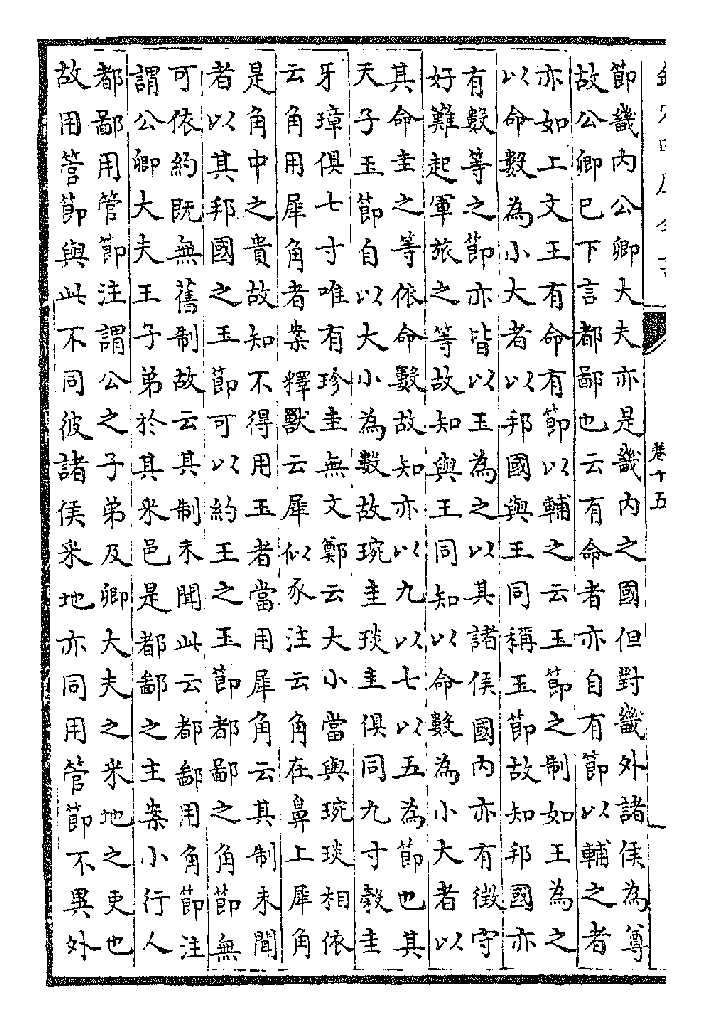 欽定四庫全書
卷十五
節畿内公卿大夫亦是畿内之國但對畿外諸侯為尊
故公卿已下言都鄙也云有命者亦自有節以輔之者
亦如上文王有命有節以輔之云玉節之制如王為之
以命數為小大者以邦國與王同稱玉節故知邦國亦
有數等之節亦皆以玉為之以其諸侯國内亦有徵守
好難起軍旅之等故知與王同知以命數為小大者以
其命圭之等依命數故知亦以九以七以五為節也其
天子玉節自以大小為數故琬圭琰圭俱同九寸穀圭
牙璋俱七寸唯有珍圭無文鄭云大小當與琬琰相依
云角用犀角者案釋獸云犀似豕注云角在鼻上犀角
是角中之貴故知不得用玉者當用犀角云其制未聞
者以其邦國之玉節可以約王之玉節都鄙之角節無
可依約既無舊制故云其制未聞此云都鄙用角節注
謂公卿大夫王子弟於其采邑是都鄙之主案小行人
都鄙用管節注謂公之子弟及卿大夫之采地之吏也
故用管節與此不同彼諸侯采地亦同用管節不異外